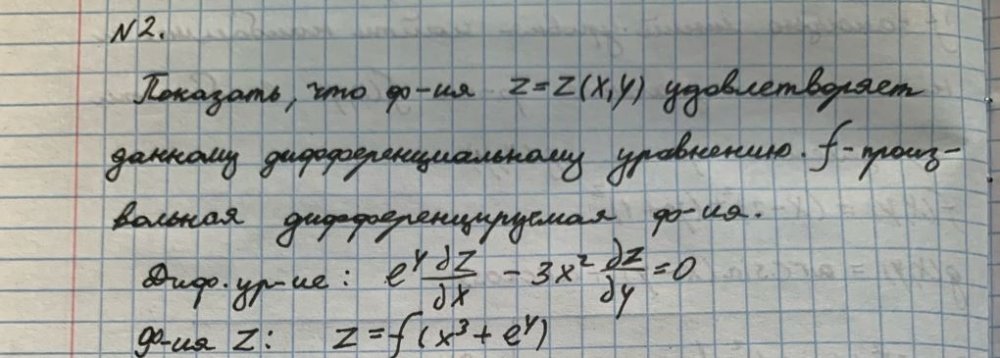 N2.
Показать, что ф-ия z=z(x,y) удовлетворяет
данному дифференциальному уравнению. f-произ-
вольная дифференцируемая ф-ия.
Диф. ур-ие: e^y ∂z/∂x - 3x² ∂z/∂y = 0
Ф-ия z: z = f(x³ + e^y)